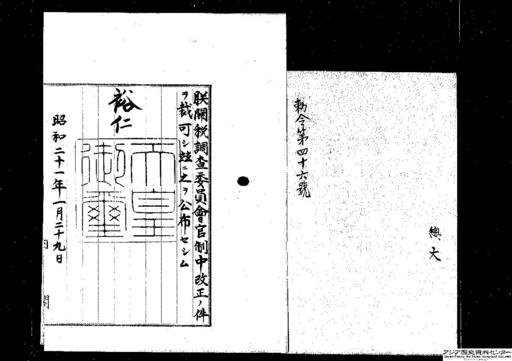 勅令第四十六號
朕關稅調查委員會官制中改正ノ件
ヲ裁可シ玆ニ之ヲ公布セシム
裕仁
天皇
御璽
昭和二十一年一月二十九日
アジア歴史資料センター